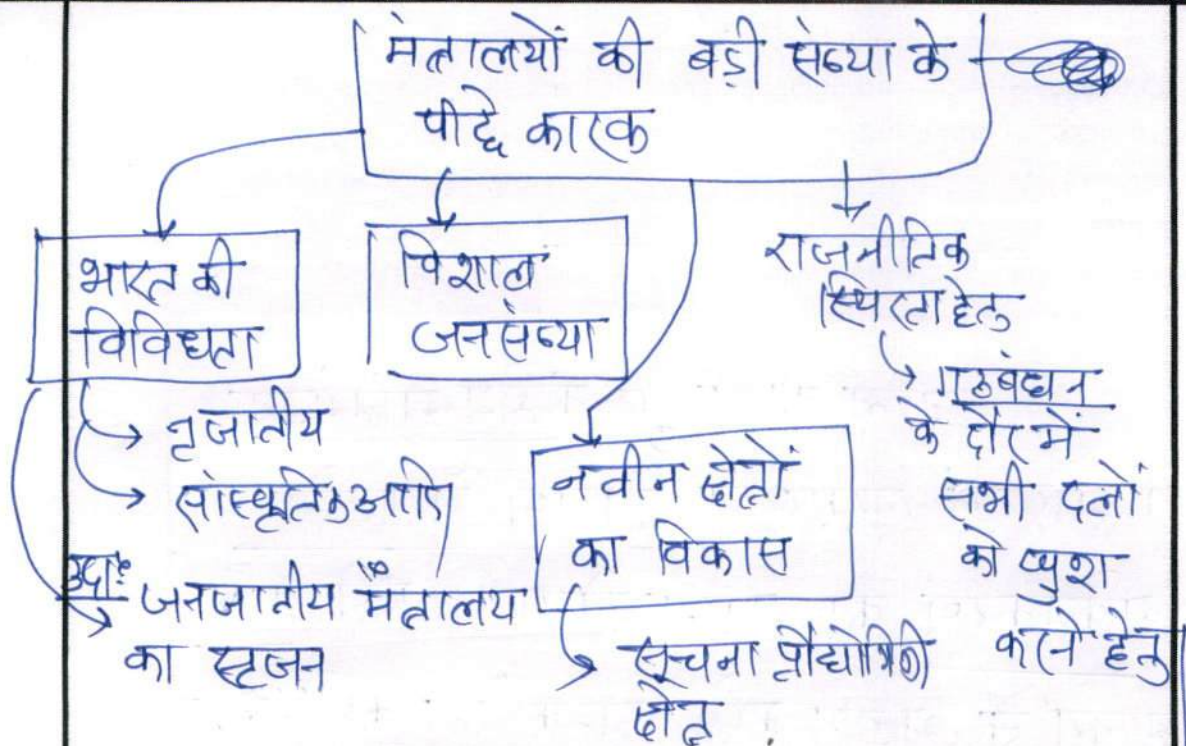 मंत्रालयों की बड़ी संख्या के
पीछे कारक
भारत की
विविधता
नृजातीय
सांस्कृतिक आदि
उदा॰:
जनजातीय मंत्रालय
का सृजन
विशाल
जनसंख्या
नवीन क्षेत्रों
का विकास
सूचना प्रौद्योगिकी
क्षेत्र
राजनीतिक
स्थिरता हेतु
गठबंधन
के दौर में
सभी दलों
को खुश
करने हेतु